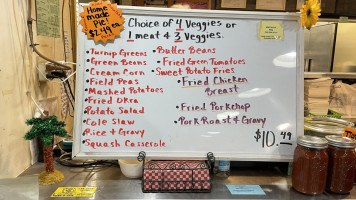 Home
made
Pie!
$1.49
ea
Choice of 4 Veggies or
1 meat & 3 Veggies.
• Turnip Greens
• Green Beans
• Cream Corn
• Field Peas
• Mashed Potatoes
• Fried Okra
• Potato Salad
• Cole Slaw
• Rice & Gravy
• Squash Casserole
• Butter Beans
• Fried Green Tomatoes
• Sweet Potato Fries
• Fried Chicken
Breast
• Fried Porkchop
• Pork Roast & Gravy
$10.49